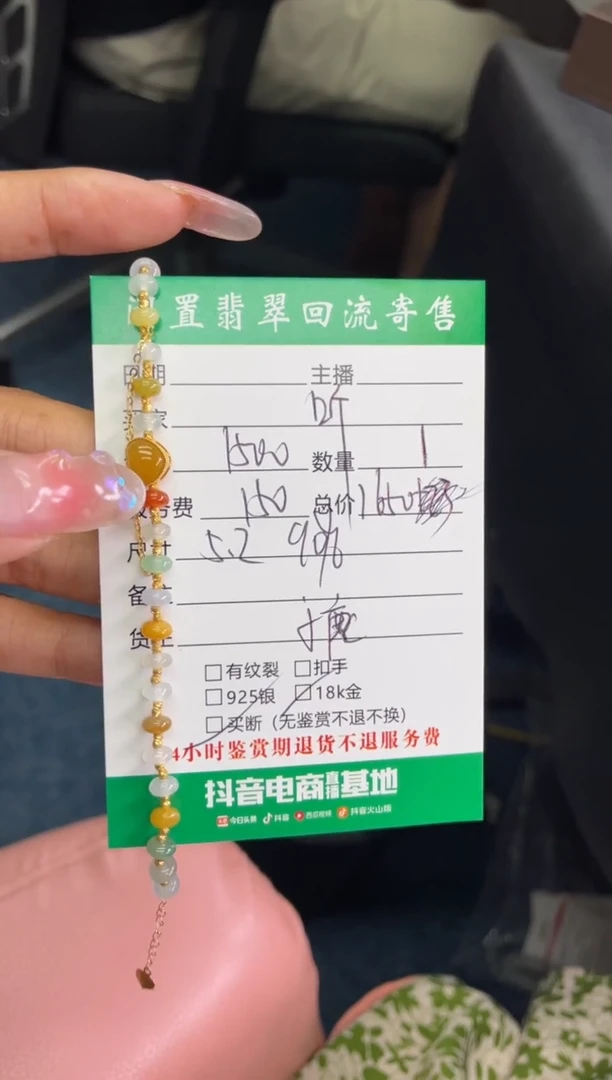 置翡翠回流寄售
日期 主播
买家 听
1500 数量 1
服务费 150 总价 1650
尺寸 5.2 9.9%
备注
货主
□有纹裂 □扣手
□925银 □18k金
□买断（无鉴赏不退不换）
4小时鉴赏期退货不退服务费
抖音电商直播基地
今日头条 抖音 西瓜视频 抖音火山版